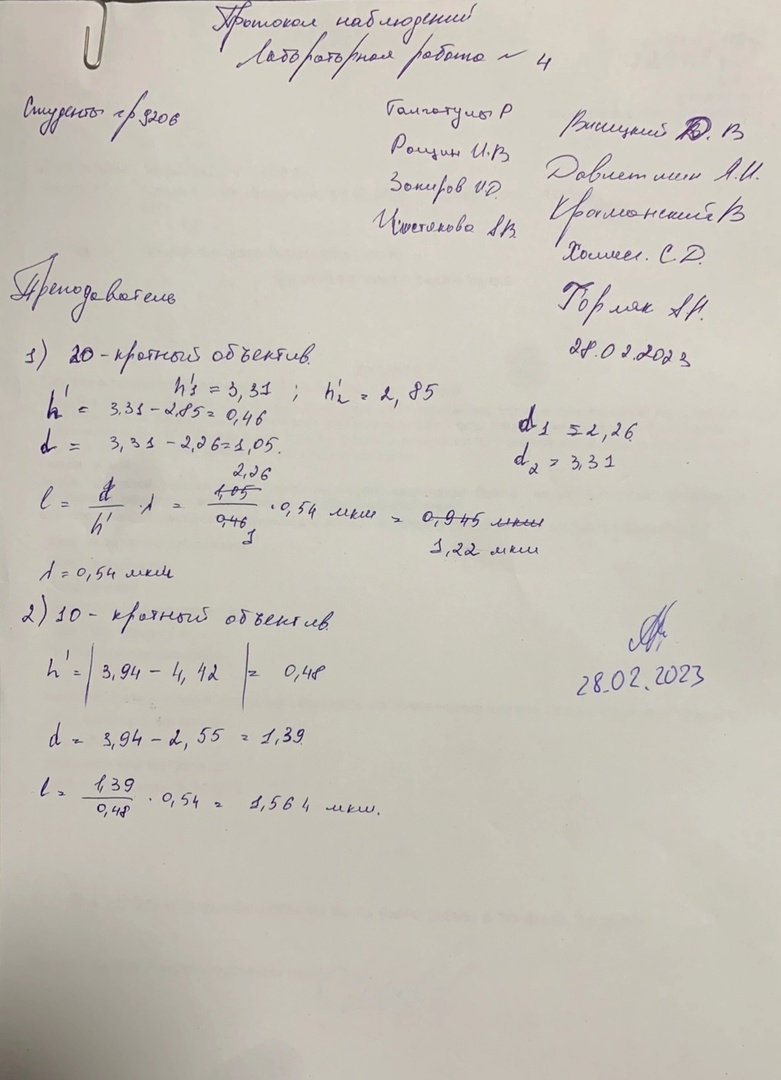 Протокол наблюдений
Лабораторная работа № 4
Студенты гр 9206
Талгатулы Р
Рощин И.В
Зокиров И.Д.
Чистякова А.В.
Висицкий Д. В
Давлетшин А.И.
Крамонский В
С.Д.
Горляк А.Н.
28.02.2023
Преподаватель
1) 20-кратный объектив.
h'1 = 3,31 ; h'2 = 2,85
h' = 3,31 - 2,85 = 0,46
d = 3,31 - 2,26 = 1,05.
d1 = 2,26
d2 = 3,31
2,26
l = d/h' · λ = 1,05/0,46 · 0,54 мкм = 0,945 мкм
1
1,22 мкм
λ = 0,54 мкм
2) 10 - кратный объектив.
h' = |3,94 - 4,42| = 0,48
d = 3,94 - 2,55 = 1,39
l = 1,39/0,48 · 0,54 = 1,564 мкм.
28.02.2023